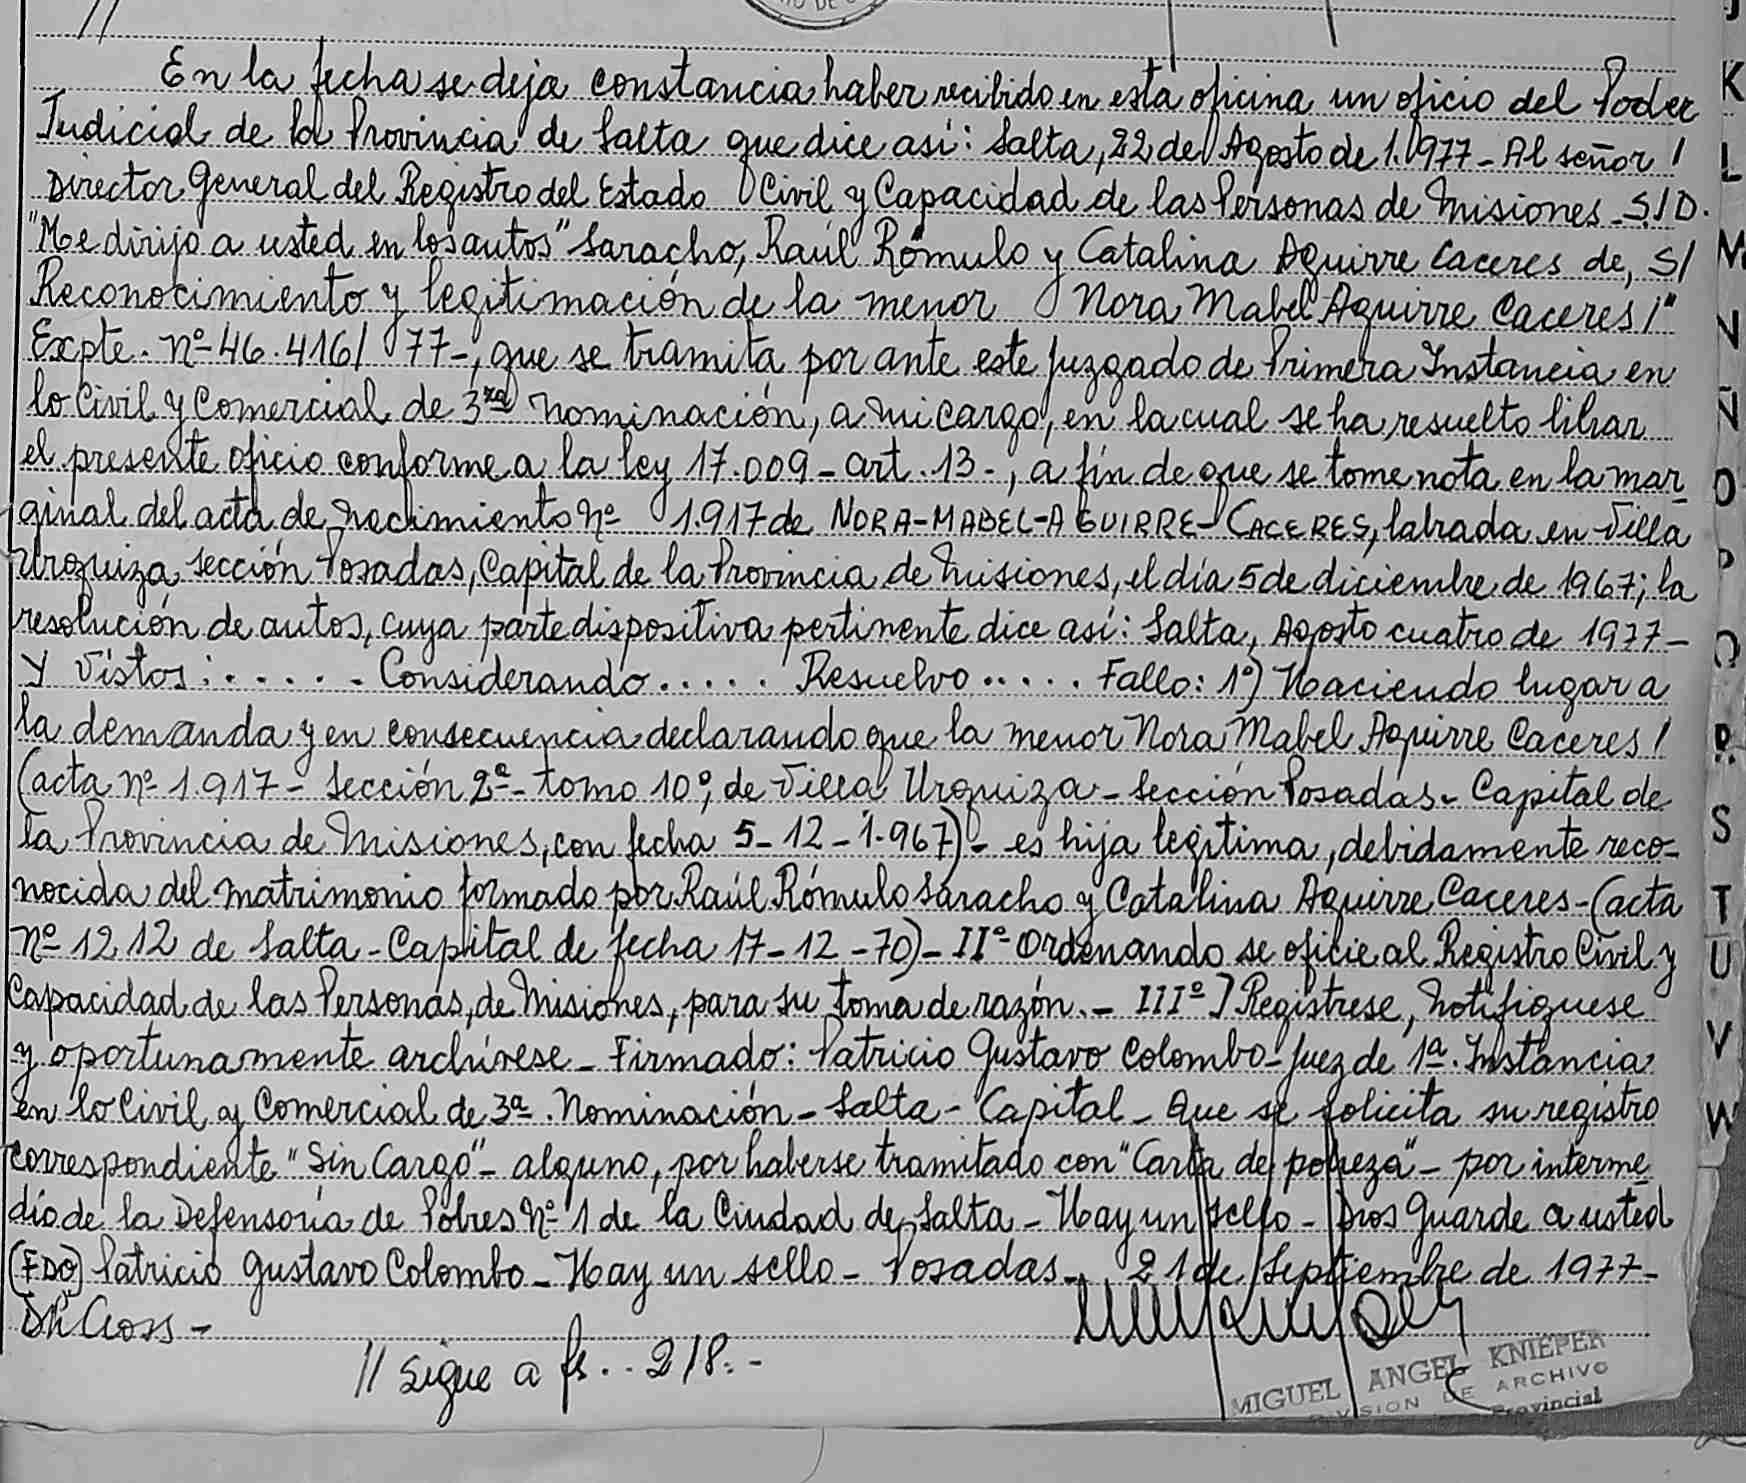 //
En la fecha se deja constancia haber recibido en esta oficina un oficio del Poder
Judicial de la Provincia de Salta que dice así: Salta, 22 de Agosto de 1.977 - Al señor /
Director General del Registro del Estado Civil y Capacidad de las Personas de Misiones - S/D.
"Me dirijo a usted en los autos" Saracho, Raúl Rómulo y Catalina Aguirre Caceres de, S/
Reconocimiento y legitimación de la menor Nora Mabel Aguirre Caceres /"
Expte. nº 46.416/ 77-, que se tramita por ante este juzgado de Primera Instancia en
lo Civil y Comercial de 3ra nominación, a mi cargo, en la cual se ha resuelto librar
el presente oficio conforme a la ley 17.009 - art. 13 -, a fin de que se tome nota en la mar
ginal del acta de nacimiento nº 1.917 de NORA-MABEL-AGUIRRE-CACERES, labrada en Villa
Urquiza, sección Posadas, Capital de la Provincia de Misiones, el día 5 de diciembre de 1967; la
resolución de autos, cuya parte dispositiva pertinente dice así: Salta, Agosto cuatro de 1977-
Y Vistos: ..... - Considerando ..... Resuelvo ..... Fallo: 1º) Haciendo lugar a
la demanda y en consecuencia declarando que la menor Nora Mabel Aguirre Caceres /
(acta nº 1.917 - Sección 2ª - tomo 10º, de Villa Urquiza - Sección Posadas - Capital de
la Provincia de Misiones, con fecha 5-12-1.967) - es hija legítima, debidamente reco-
nocida del matrimonio formado por Raúl Rómulo Saracho y Catalina Aguirre Caceres - (acta
nº 1212 de Salta - Capital de fecha 17-12-70) - IIº Ordenando se oficie al Registro Civil y
Capacidad de las Personas, de Misiones, para su toma de razón. - IIIº] Regístrese, notifíquese
y oportunamente archívese - Firmado: Patricio Gustavo Colombo - Juez de 1ª. Instancia
en lo Civil y Comercial de 3ª. Nominación - Salta - Capital - Que se solicita su registro
correspondiente "Sin Cargo" - alguno, por haberse tramitado con "Carta de pobreza" - por interme
dio de la Defensoría de Pobres nº 1 de la Ciudad de Salta - Hay un sello - Dios guarde a usted
(FDO) Patricio Gustavo Colombo - Hay un sello - Posadas - 21 de Septiembre de 1977 -
// Sigue a fs. .. 218. -
MIGUEL ANGEL KNIEPER
DIVISION DE ARCHIVO
Provincial
K
L
M
N
Ñ
O
P
Q
R
S
T
U
V
W